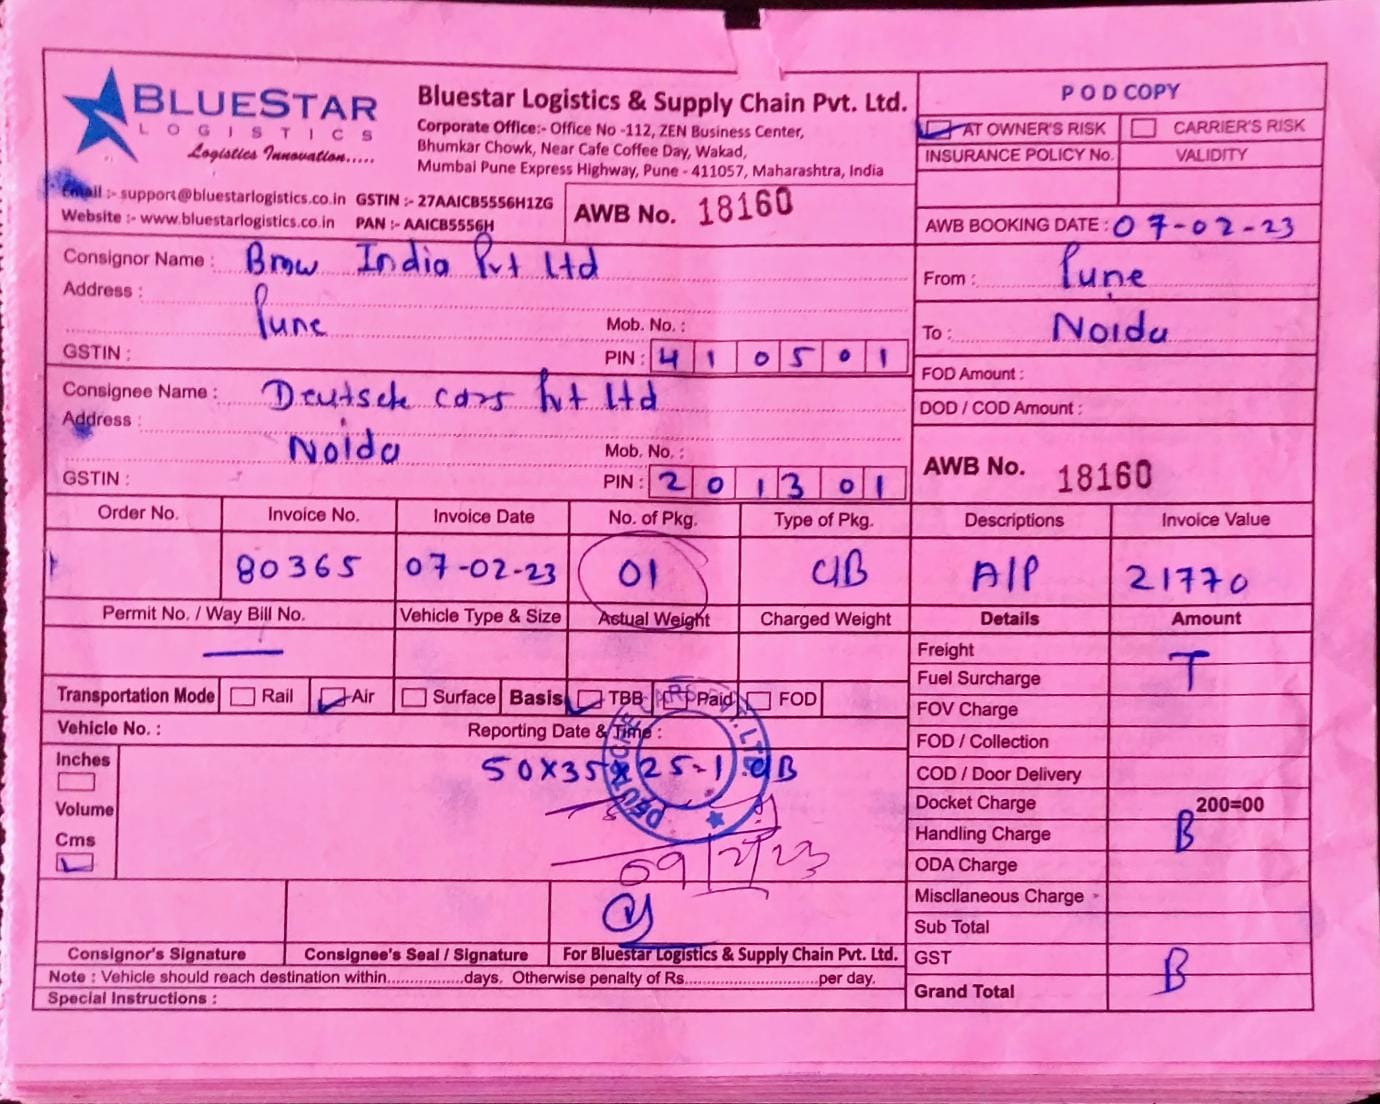 BLUESTAR
LOGISTICS
Logistics Innovation.....
Bluestar Logistics & Supply Chain Pvt. Ltd.
Corporate Office:- Office No -112, ZEN Business Center,
Bhumkar Chowk, Near Cafe Coffee Day, Wakad,
Mumbai Pune Express Highway, Pune - 411057, Maharashtra, India
Email :- support@bluestarlogistics.co.in GSTIN :- 27AAICB5556H1ZG
Website :- www.bluestarlogistics.co.in PAN :- AAICB5556H
AWB No. 18160
POD COPY
AT OWNER'S RISK CARRIER'S RISK
INSURANCE POLICY No. VALIDITY
AWB BOOKING DATE : 07-02-23
Consignor Name : Bmw India Pvt Ltd
Address :
Pune
Mob. No. :
GSTIN : PIN : 410501
From : Pune
To : Noida
FOD Amount :
DOD / COD Amount :
Consignee Name : Deutsche cars Pvt Ltd
Address :
Noida
Mob. No. :
GSTIN : PIN : 201301
AWB No. 18160
Order No. Invoice No. Invoice Date No. of Pkg. Type of Pkg. Descriptions Invoice Value
80365 07-02-23 01 C/B A/P 21770
Permit No. / Way Bill No. Vehicle Type & Size Actual Weight Charged Weight Details Amount
Freight
T
Fuel Surcharge
Transportation Mode Rail Air Surface Basis TBB Paid FOD
FOV Charge
Vehicle No. : Reporting Date & Time :
FOD / Collection
Inches
50X35X25-1 C/B
COD / Door Delivery
Volume
Docket Charge 200=00
Cms
Handling Charge B
09/2/23
ODA Charge
Miscllaneous Charge
Sub Total
Consignor's Signature Consignee's Seal / Signature For Bluestar Logistics & Supply Chain Pvt. Ltd.
GST B
Note : Vehicle should reach destination within.................days. Otherwise penalty of Rs..............................per day.
Grand Total
Special Instructions :